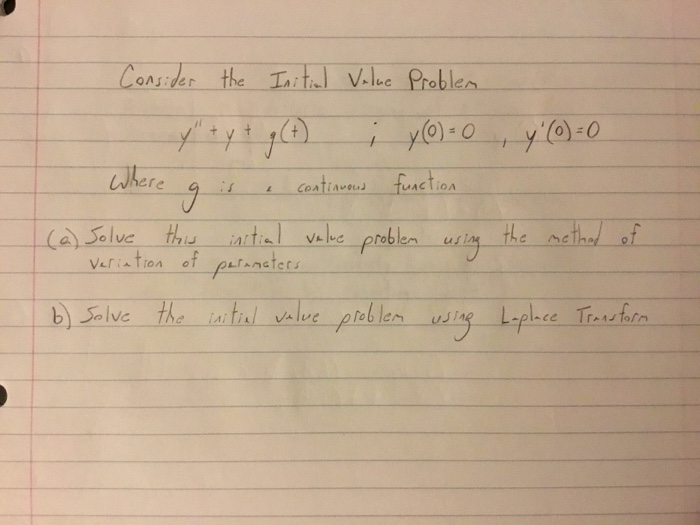 Consider the Initial Value Problem
y'' + y + g(t) ; y(0) = 0 , y'(0) = 0
Where g is a continuous function
(a) Solve this initial value problem using the method of
variation of parameters
b) Solve the initial value problem using Laplace Transform